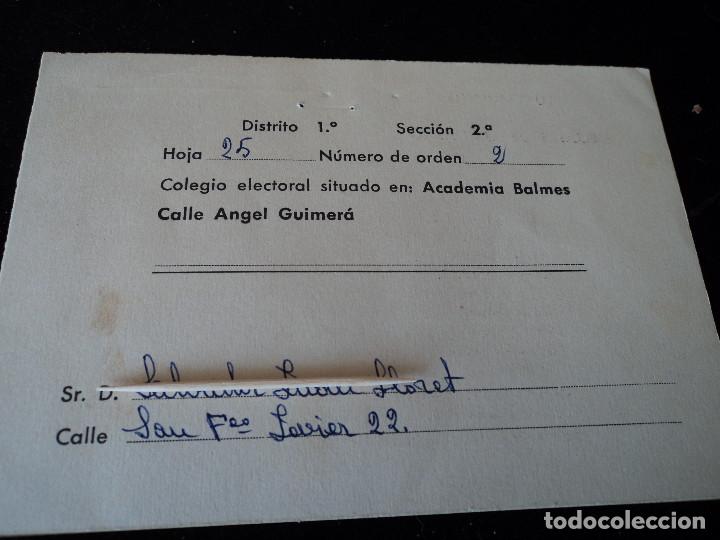 Distrito 1.º Sección 2.ª
Hoja 25 Número de orden 2
Colegio electoral situado en: Academia Balmes
Calle Angel Guimerá
Sr. D. Lloret
Calle San Fco Javier 22.
todocoleccion
todocoleccion.net